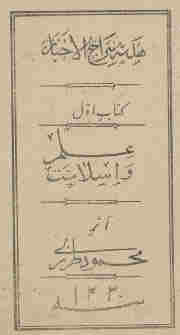 هدیه سراج الاخبار
کتاب اول
علم
و اسلامیت
اثر
محمود طرزی
سنه ۱۳۳۰